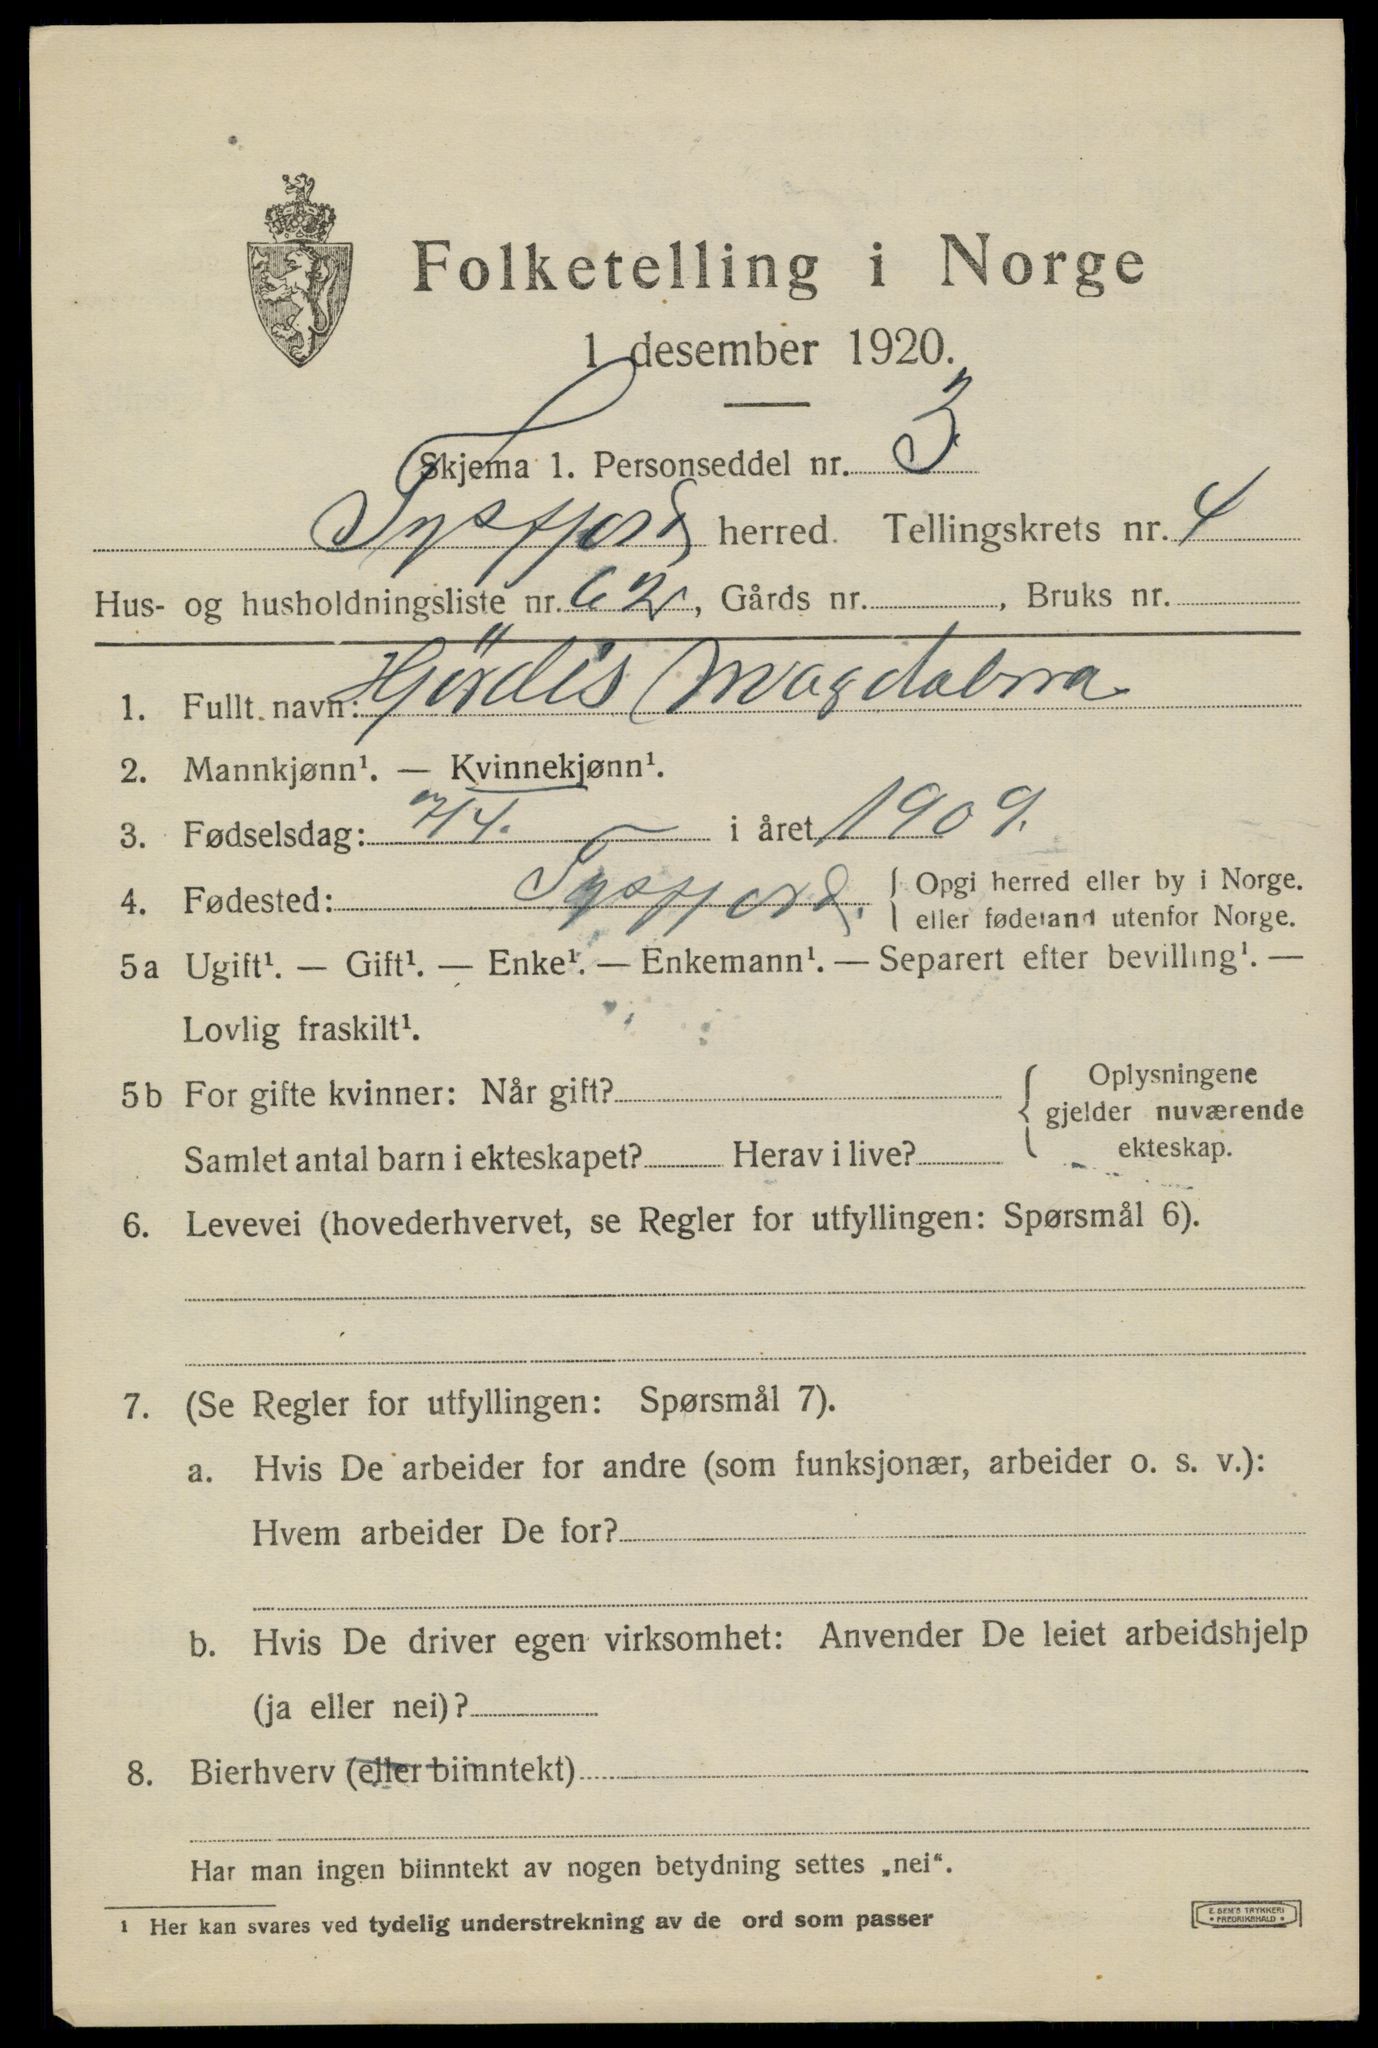 Folketelling i Norge
1 desember 1920.
Skjema 1. Personseddel nr. 3.
Tysfjord herred. Tellingskrets nr. 4
Hus- og husholdningsliste nr. 62, Gårds nr. , Bruks nr.
1. Fullt navn: Hjördis Magdalena
2. Mannkjønn¹. — Kvinnekjønn¹.
3. Fødselsdag: 7/4. i året 1909.
4. Fødested: Tysfjord. { Opgi herred eller by i Norge.
eller fødeland utenfor Norge.
5a Ugift¹. — Gift¹. — Enke¹. — Enkemann¹. — Separert efter bevilling¹. —
Lovlig fraskilt¹.
5b For gifte kvinner: Når gift? { Oplysningene
gjelder nuværende
Samlet antal barn i ekteskapet? Herav i live? ekteskap.
6. Levevei (hovederhvervet, se Regler for utfyllingen: Spørsmål 6).
7. (Se Regler for utfyllingen: Spørsmål 7).
a. Hvis De arbeider for andre (som funksjonær, arbeider o. s. v.):
Hvem arbeider De for?
b. Hvis De driver egen virksomhet: Anvender De leiet arbeidshjelp
(ja eller nei)?
8. Bierhverv (eller biinntekt)
Har man ingen biinntekt av nogen betydning settes „nei“.
¹ Her kan svares ved tydelig understrekning av de ord som passer
E. SEM'S TRYKKERI
* FREDRIKSHALD *